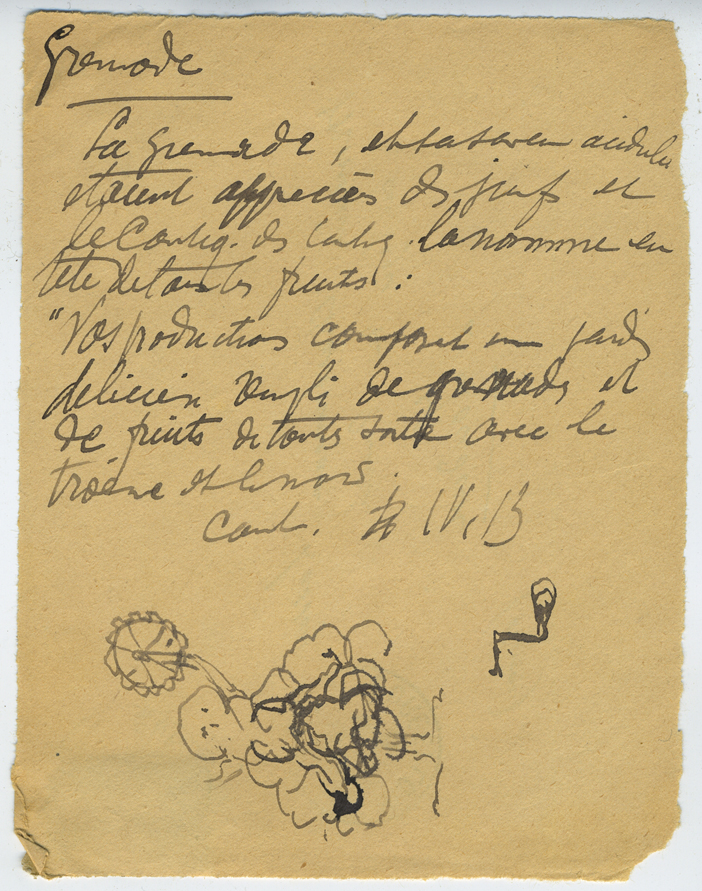 Grenade
La Grenade, et sa saveur acidulée
étaient appreciées des juifs et
le Cantiq. des Cantiq. la nomme en
tête de tous les fruits :
"Vos productions composent un jardin
délicieux rempli de grenades et
de fruits de toutes sortes avec le
troëne et le nard.
Cant. IV, 13